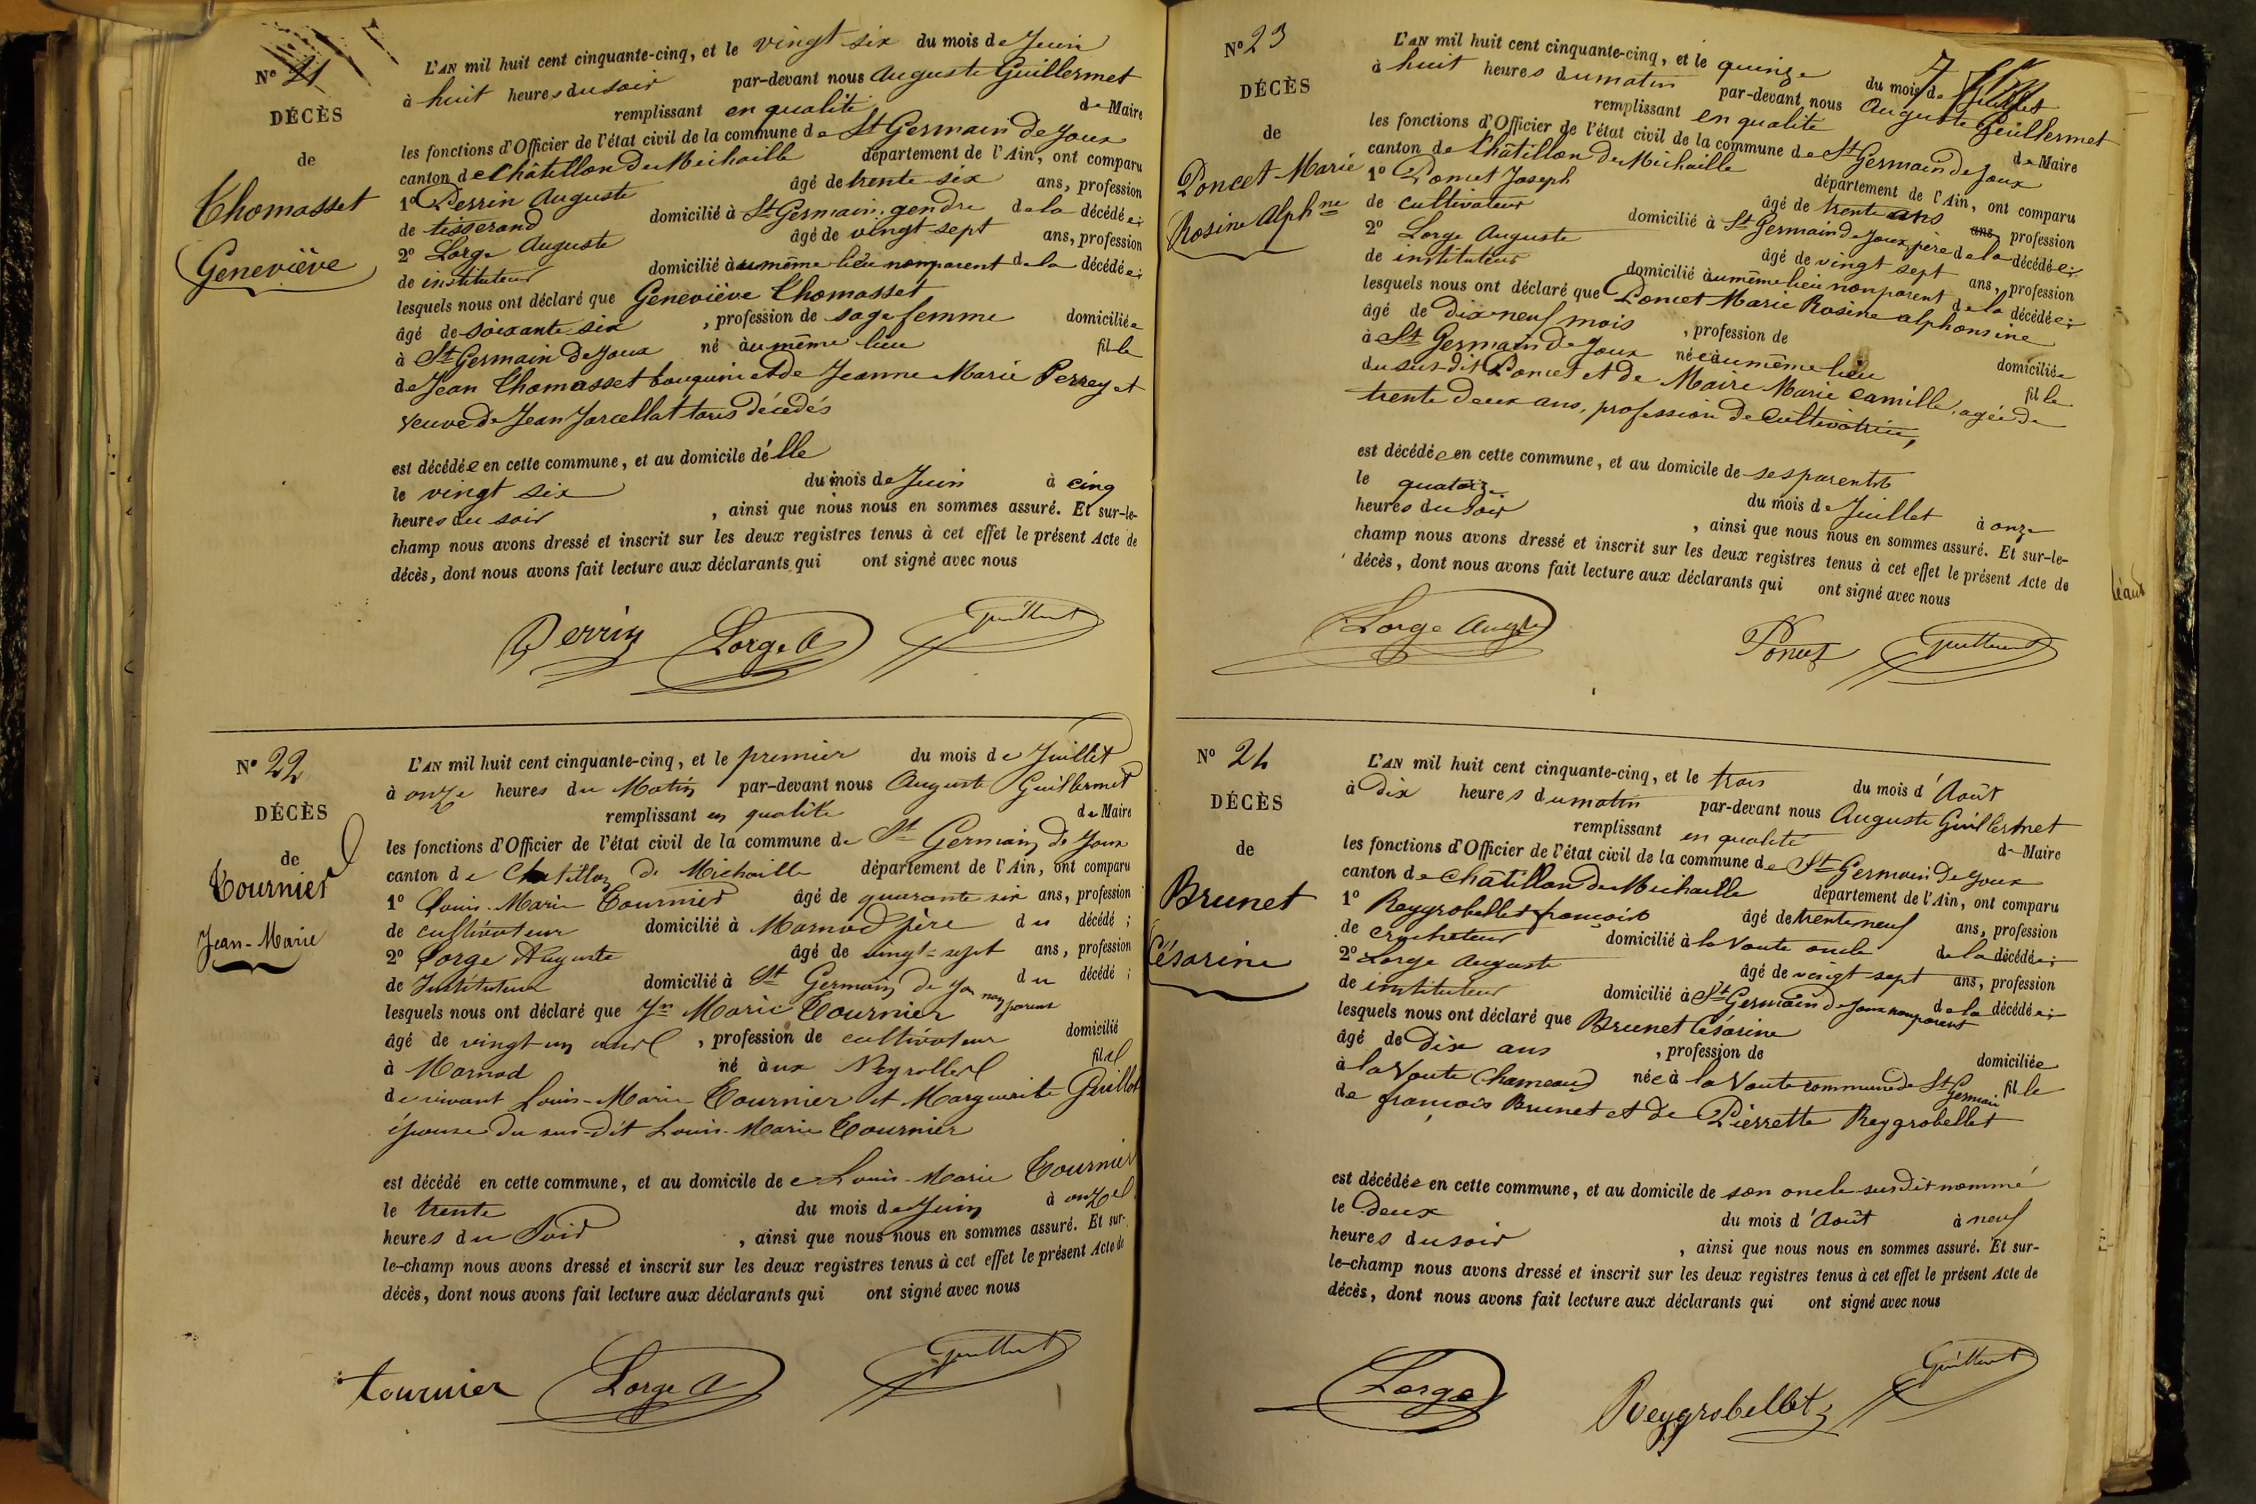 N° 21
DÉCÈS
de
Thomasset
Geneviève
L'AN mil huit cent cinquante-cinq, et le vingt six du mois de Juin
à huit heures du soir par-devant nous Auguste Guillermet
remplissant en qualité de Maire
les fonctions d'Officier de l'état civil de la commune de St Germain de Joux
canton de Châtillon De Michaille département de l'Ain, ont comparu
1° Perrin Auguste âgé de trente six ans, profession
de tisserand domicilié à St Germain, gendre de la décédée;
2° Lorge Auguste âgé de vingt sept ans, profession
de instituteur domicilié au même lieu non parent de la décédée;
lesquels nous ont déclaré que Geneviève Thomasset
âgé de soixante six , profession de sage femme domiciliée
à St Germain De Joux né au même lieu fille
de Jean Thomasset et de Jeanne Marie Perrey et
veuve de Jean Jarcellat tous décédés
est décédée en cette commune, et au domicile d'elle
le vingt six du mois de Juin à cinq
heures du soir , ainsi que nous nous en sommes assuré. Et sur-le-
champ nous avons dressé et inscrit sur les deux registres tenus à cet effet le présent Acte de
décès, dont nous avons fait lecture aux déclarants qui ont signé avec nous
Perrin Lorge A Guillermet
N° 22
DÉCÈS
de
Tournier
Jean-Marie
L'AN mil huit cent cinquante-cinq, et le premier du mois de Juillet
à onze heures du Matin par-devant nous Auguste Guillermet
remplissant en qualité de Maire
les fonctions d'Officier de l'état civil de la commune de St Germain de Joux
canton de Chatillon de Michaille département de l'Ain, ont comparu
1° Louis-Marie Tournier âgé de quarante six ans, profession
de cultivateur domicilié à Marnod père du décédé;
2° Lorge Auguste âgé de vingt-sept ans, profession
de Instituteur domicilié à St Germain de Jou non parent du décédé;
lesquels nous ont déclaré que Jn Marie Tournier
âgé de vingt un ans , profession de cultivateur domicilié
à Marnod né aux Neyrolles fils
de vivant Louis-Marie Tournier et Marguerite Guillot
épouse du sus-dit Louis-Marie Tournier
est décédé en cette commune, et au domicile de Louis-Marie Tournier
le trente du mois de Juin à onze
heures du Soir , ainsi que nous nous en sommes assuré. Et sur-
le-champ nous avons dressé et inscrit sur les deux registres tenus à cet effet le présent Acte de
décès, dont nous avons fait lecture aux déclarants qui ont signé avec nous
tournier Lorge A Guillermet
N° 23
DÉCÈS
de
Poncet Marie
Rosine Alphne
L'AN mil huit cent cinquante-cinq, et le quinze du mois de Juillet
à huit heures du matin par-devant nous Auguste Guillermet
remplissant en qualité de Maire
les fonctions d'Officier de l'état civil de la commune de St Germain de Joux
canton de Châtillon De Michaille département de l'Ain, ont comparu
1° Poncet Joseph âgé de trente ans ans profession
de cultivateur domicilié à St Germain de Joux père de la décédée;
2° Lorge Auguste âgé de vingt sept ans, profession
de instituteur domicilié au même lieu non parent de la décédée;
lesquels nous ont déclaré que Poncet Marie Rosine alphonsine
âgé de dix neuf mois , profession de domiciliée
à St Germain De Joux née au même lieu fille
du sus-dit Poncet et de Maire Marie Camille, agée de
trente deux ans, profession de cultivatrice,
est décédée en cette commune, et au domicile de ses parents
le quatorze du mois de Juillet à onze
heures du Soir , ainsi que nous nous en sommes assuré. Et sur-le-
champ nous avons dressé et inscrit sur les deux registres tenus à cet effet le présent Acte de
décès, dont nous avons fait lecture aux déclarants qui ont signé avec nous
Lorge Augte Poncet Guillermet
N° 24
DÉCÈS
de
Brunet
Césarine
L'AN mil huit cent cinquante-cinq, et le trois du mois d'Août
à Dix heures du matin par-devant nous Auguste Guillermet
remplissant en qualité de Maire
les fonctions d'Officier de l'état civil de la commune de St Germain De Joux
canton de Châtillon De Michaille département de l'Ain, ont comparu
1° Reygrobellet françois âgé de trente neuf ans, profession
de crocheteur domicilié à la Voute oncle de la décédée;
2° Lorge Auguste âgé de vingt sept ans, profession
de instituteur domicilié à St Germain de Joux non parent de la décédée;
lesquels nous ont déclaré que Brunet Césarine
âgé de Dix ans , profession de domiciliée
à la Voute (hameau) née à la Voute commune de St Germain fille
de françois Brunet et de Pierrette Reygrobellet
est décédée en cette commune, et au domicile de son oncle sus dit nommé
le Deux du mois d'Août à neuf
heures du soir , ainsi que nous nous en sommes assuré. Et sur-
le-champ nous avons dressé et inscrit sur les deux registres tenus à cet effet le présent Acte de
décès, dont nous avons fait lecture aux déclarants qui ont signé avec nous
Lorge Reygrobellet Guillermet